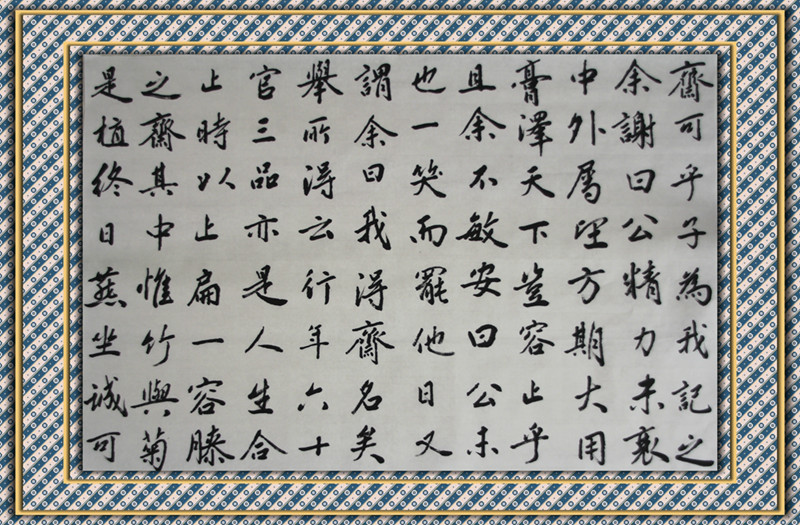 齋可乎子為我記之
余謝曰公精力未衰
中外屬望方期大用
膏澤天下豈容止乎
且余不敏安曰公未
也一笑而罷他日又
謂余曰我得齋名矣
舉所得云行年六十
官三品亦是人生合
止時以止扁一容膝
之齋其中惟竹與菊
是植終日燕坐誠可